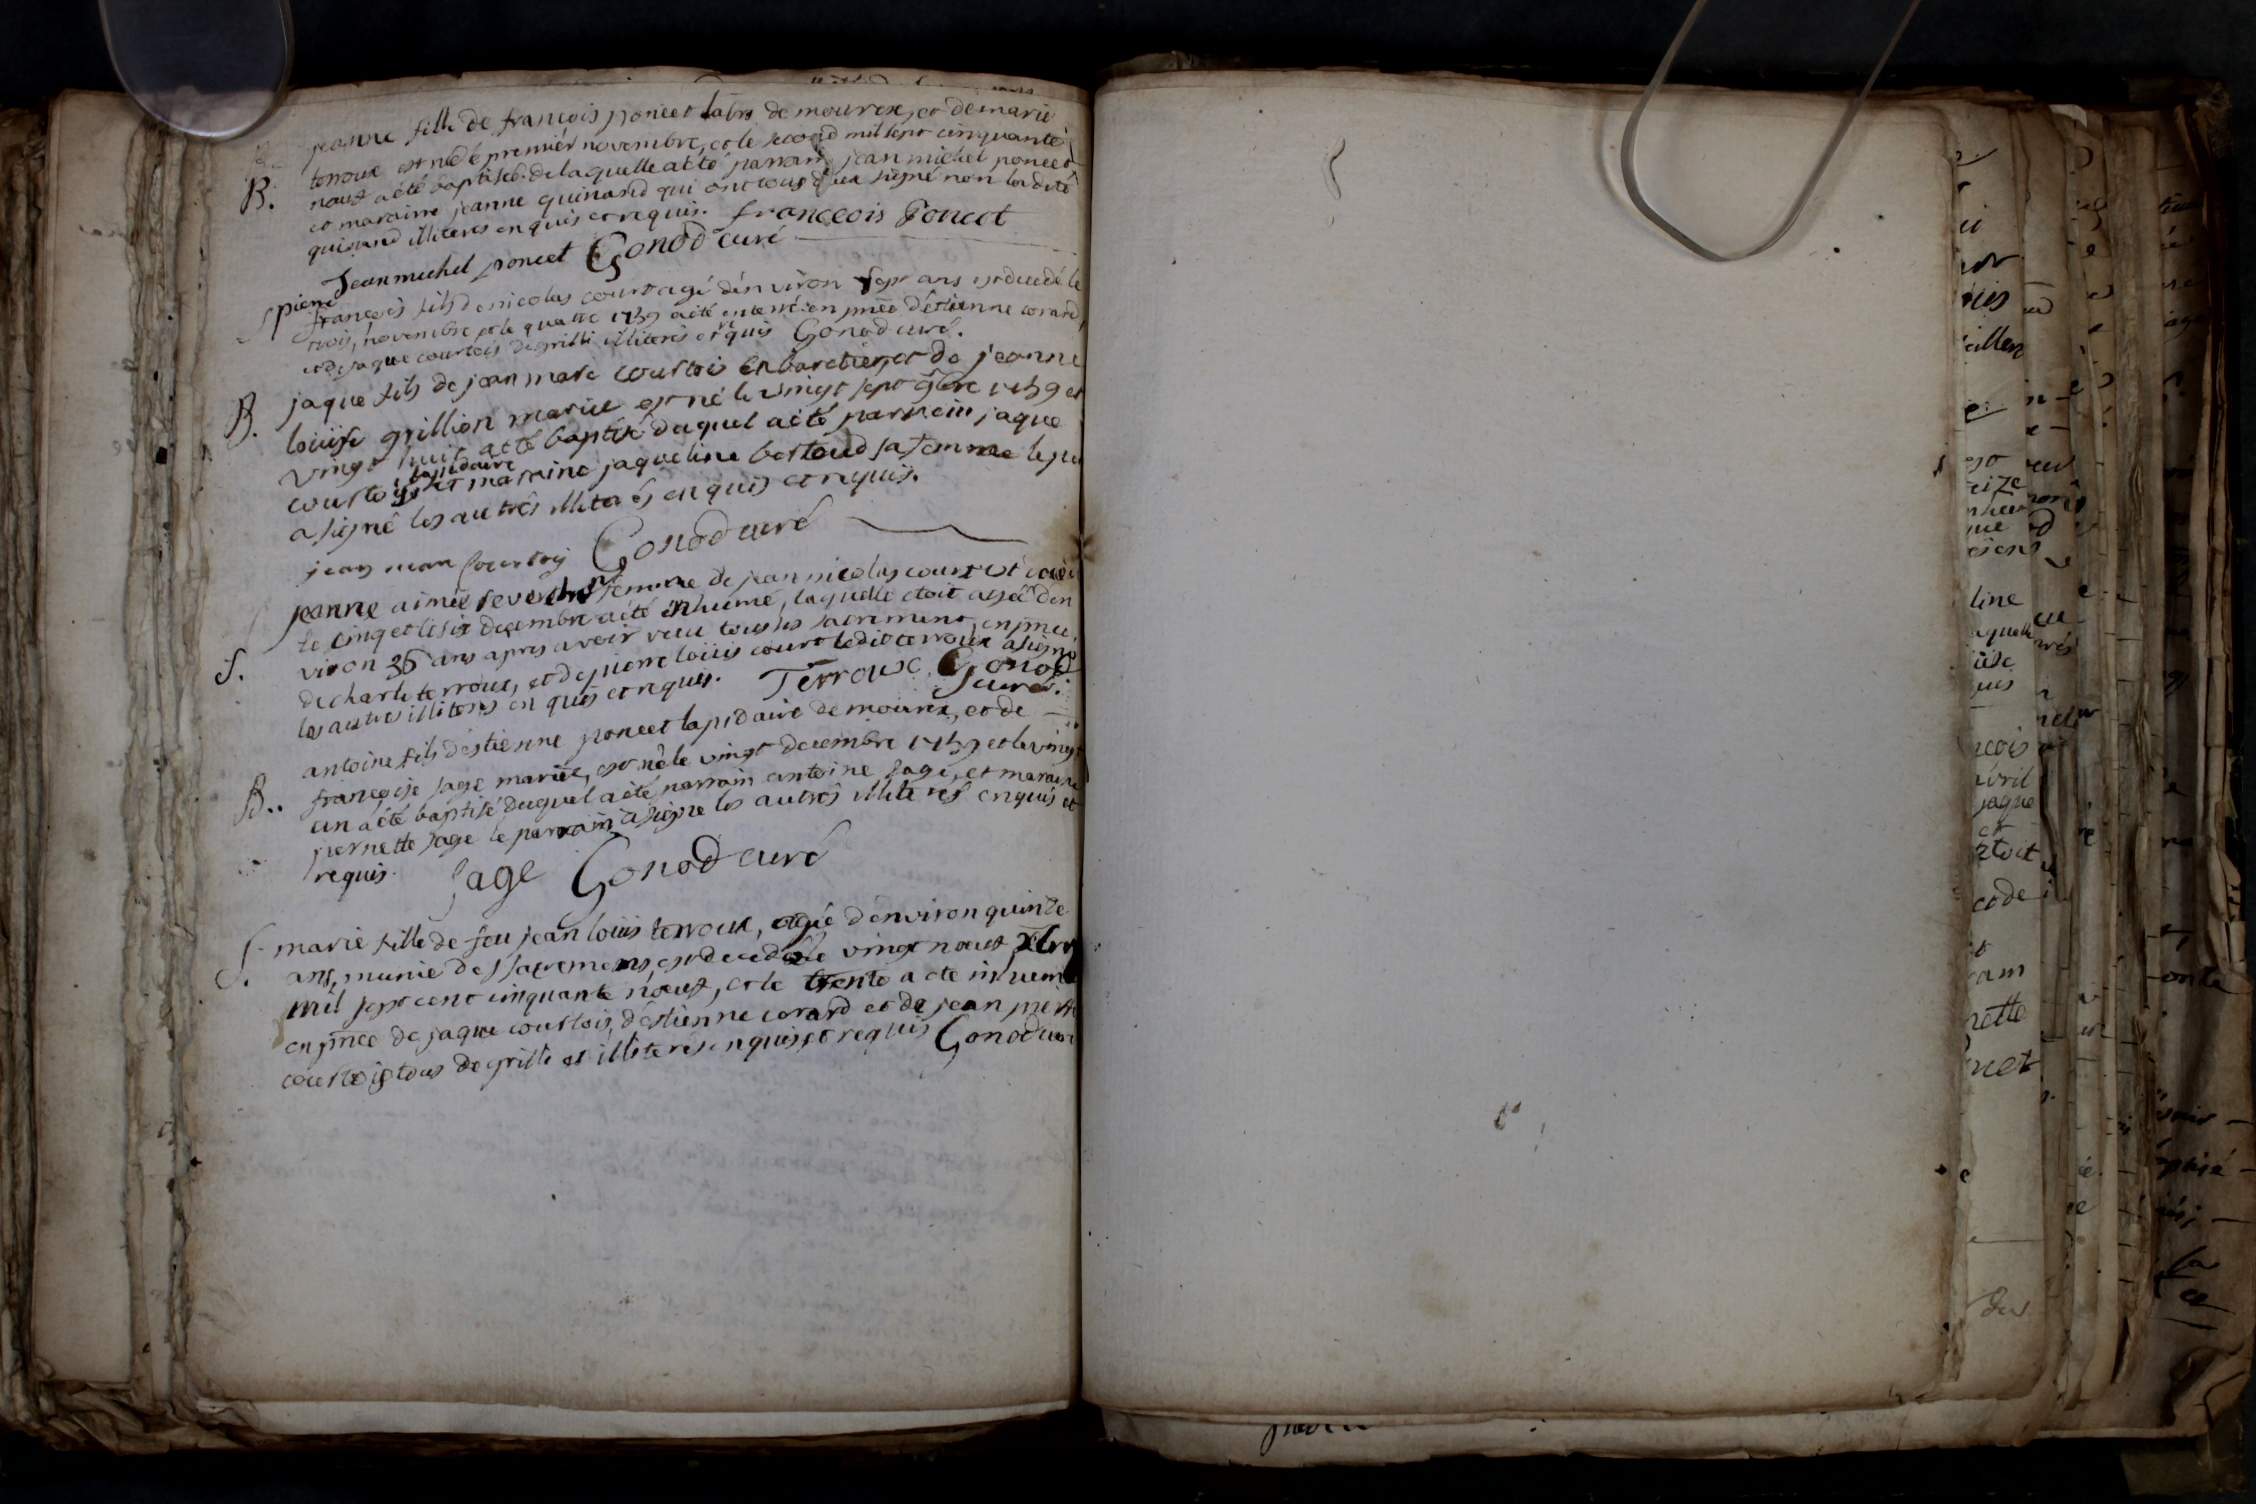 jeanne fille de françois poncet labr de mourex, et de marie
B. terroux est née le premier novembre, et le second mil sept cinquante
neuf a été baptisée. de laquelle a été parrain jean michel poncet
et maraine jeanne quinand qui ont tous deux signé non la dite
quinand illiteres enquis et requis. franceois Poncet
Jean michel poncet Gonod curé
S pierre
françois fils de nicolas court agé d'environ sept ans est decedé le
trois, novembre et le quatre 1759 a été enterré en pnce d'étienne corard,
et de jaque courtois de grilli illiterés et quis Gonod curé.
B. jaque fils de jean marc courtois et de jeanne
loüise grillion mariée est né le vingt sept 9bre 1759 et
vingt huit a été baptisé duquel a été parrein jaque
lapidaire
courtois et marraine jaqueline bertoud sa femme
a signé les autres illiterés enquis et requis.
jean marc Courtois Gonod curé
jeanne aimée femme de jean nicolas court
S. le cinq et le six decembre a été inhumé, laquelle etoit agée d'en
viron 36 ans apres avoir recu tous les sacrement, en pnce
de charle terroux, et de pierre loüis court le dit terroux a signé
les autres illiterés enquis et requis. Terroux Gonod
curé.
antoine fils d'estienne poncet lapidaire de mourex, et de
B. françoise sage mariée, est né le vingt decembre 1759 et le vingt
un a été baptisé duquel a été parrain antoine sage, et maraine
pernette sage le parrain a signe les autres illiteres enquis et
requis. Sage Gonod curé
S. marie fille de feu jean loüis terroux, agée d'environ quinze
ans, munie des sacremens, est decedée le vingt neuf Xbre
mil sept cent cinquante neuf, et le trente a ete inhumé
en pnce de jaque courtois, d'estienne corard et de jean
courtois tous de grilli et illiterés enquis, et requis Gonod curé